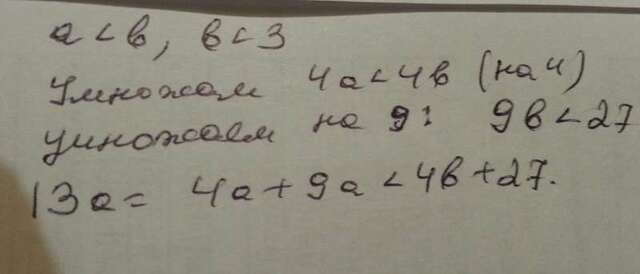 a < b, b < 3
Умножаем 4a < 4b (на 4)
умножаем на 9: 9b < 27
13a = 4a + 9a < 4b + 27.